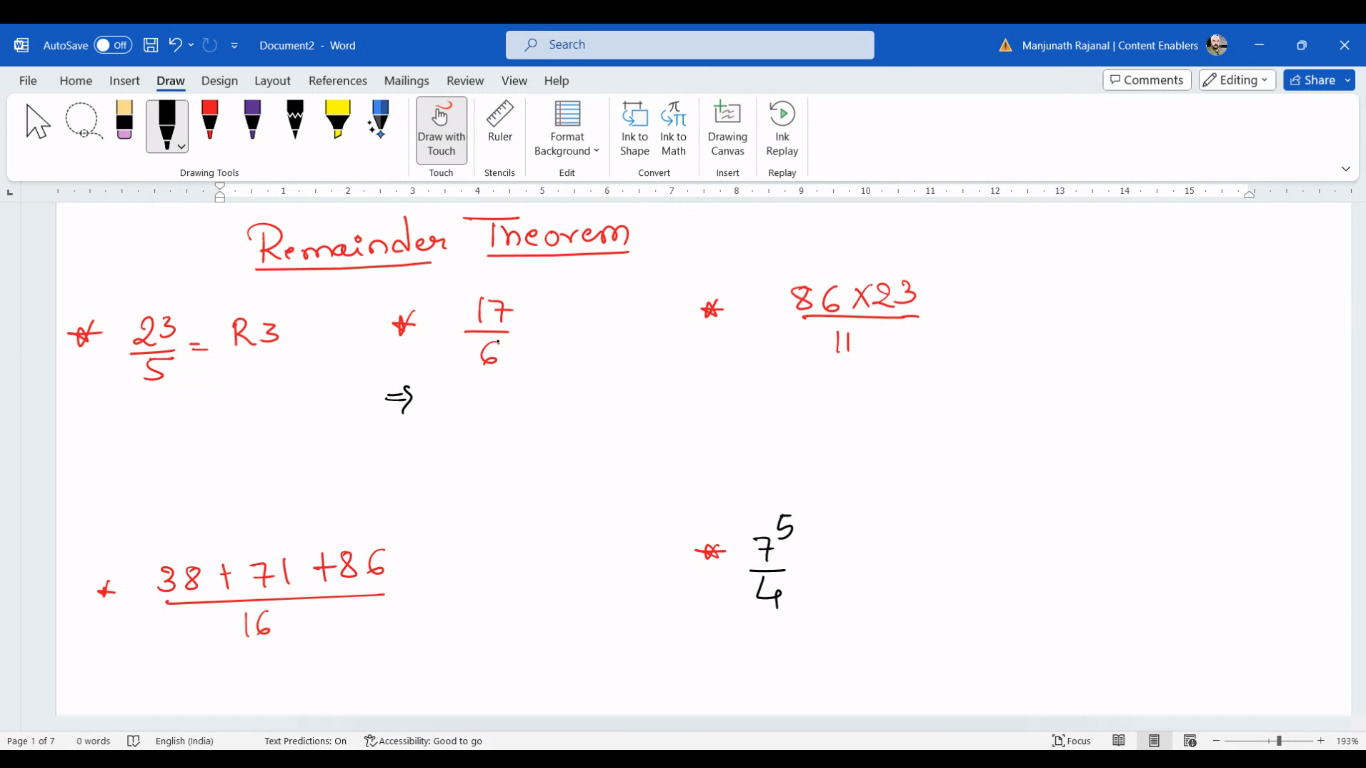 AutoSave Off Document2 - Word Search Manjunath Rajanal | Content Enablers
File Home Insert Draw Design Layout References Mailings Review View Help Comments Editing Share
Draw with Touch Ruler Format Background Ink to Shape Ink to Math Drawing Canvas Ink Replay
Drawing Tools Touch Stencils Edit Convert Insert Replay
1 2 3 4 5 6 7 8 9 10 11 12 13 14 15
Remainder Theorem
23/5 = R3
17/6
⇒
86 × 23
11
38 + 71 + 86
16
7^5
4
Page 1 of 7 0 words English (India) Text Predictions: On Accessibility: Good to go Focus 193%